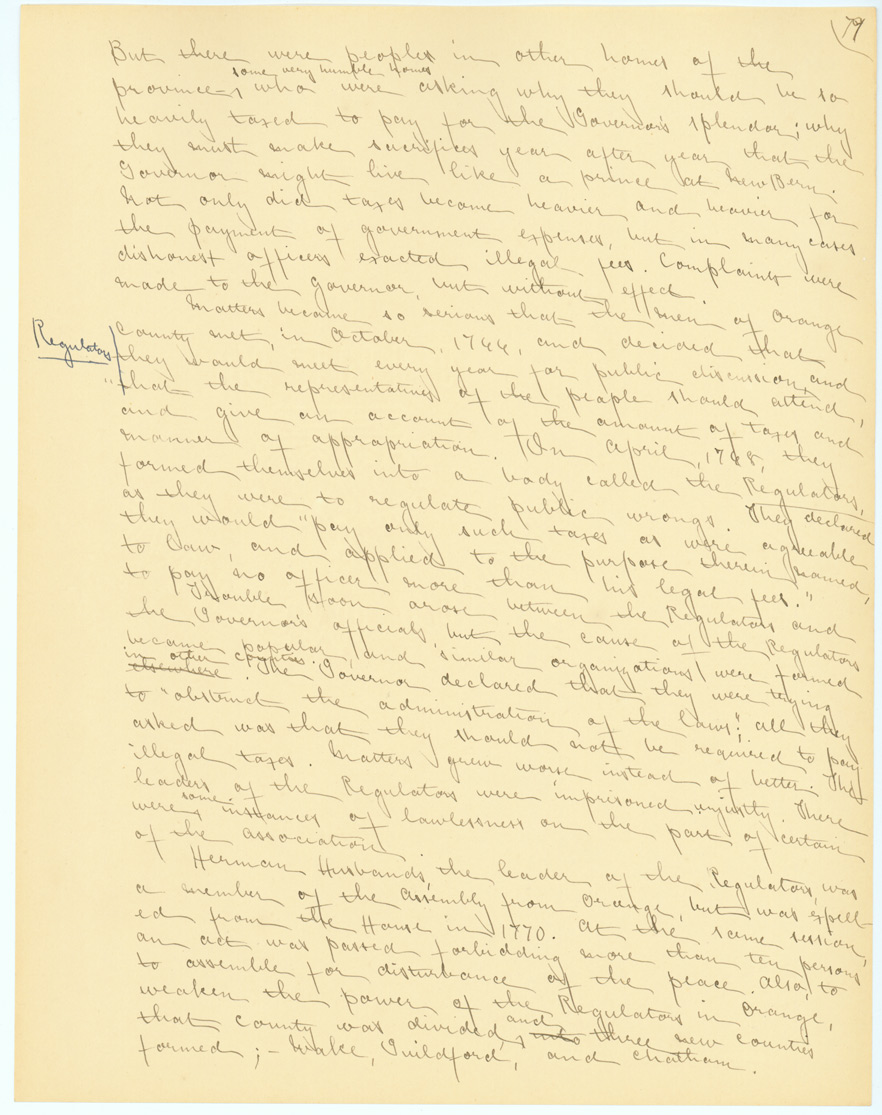 79
But there were people in other homes of the
some very humble homes
province, who were asking why they should be so
heavily taxed to pay for the Governor's splendor; why
they must make sacrifices year after year that the
Governor might live like a prince at New Bern.
Not only did taxes become heavier and heavier for
the payment of government expenses, but in many cases
dishonest officers exacted illegal fees. Complaints were
made to the Governor, but without effect.
Matters became so serious that the men of Orange
Regulators
County met, in October, 1766, and decided that
they would meet every year for public discussion, and
"that the representatives of the people should attend,
and give an account of the amount of taxes and
manner of appropriation. In April, 1768, they
formed themselves into a body called the Regulators,
as they were to regulate public wrongs. They declared
they would "pay only such taxes as were agreeable
to law, and applied to the purpose therein named,
to pay no officer more than his legal fees."
Trouble soon arose between the Regulators and
the Governor's officials, but the cause of the Regulators
became popular, and similar organizations were formed
in other counties.
elsewhere. The Governor declared that they were trying
to "obstruct the administration of the laws"; all they
asked was that they should not be required to pay
illegal taxes. Matters grew worse instead of better. The
leaders of the Regulators were imprisoned unjustly. There
some
were instances of lawlessness on the part of certain
of the association.
Herman Husbands, the leader of the Regulators, was
a member of the Assembly from Orange, but was expell-
ed from the House in 1770. At the same session,
an act was passed forbidding more than ten persons
to assemble for disturbance of the peace. Also, to
weaken the power of the Regulators in Orange,
and
that county was divided, into three new counties
formed; - Wake, Guildford, and Chatham.